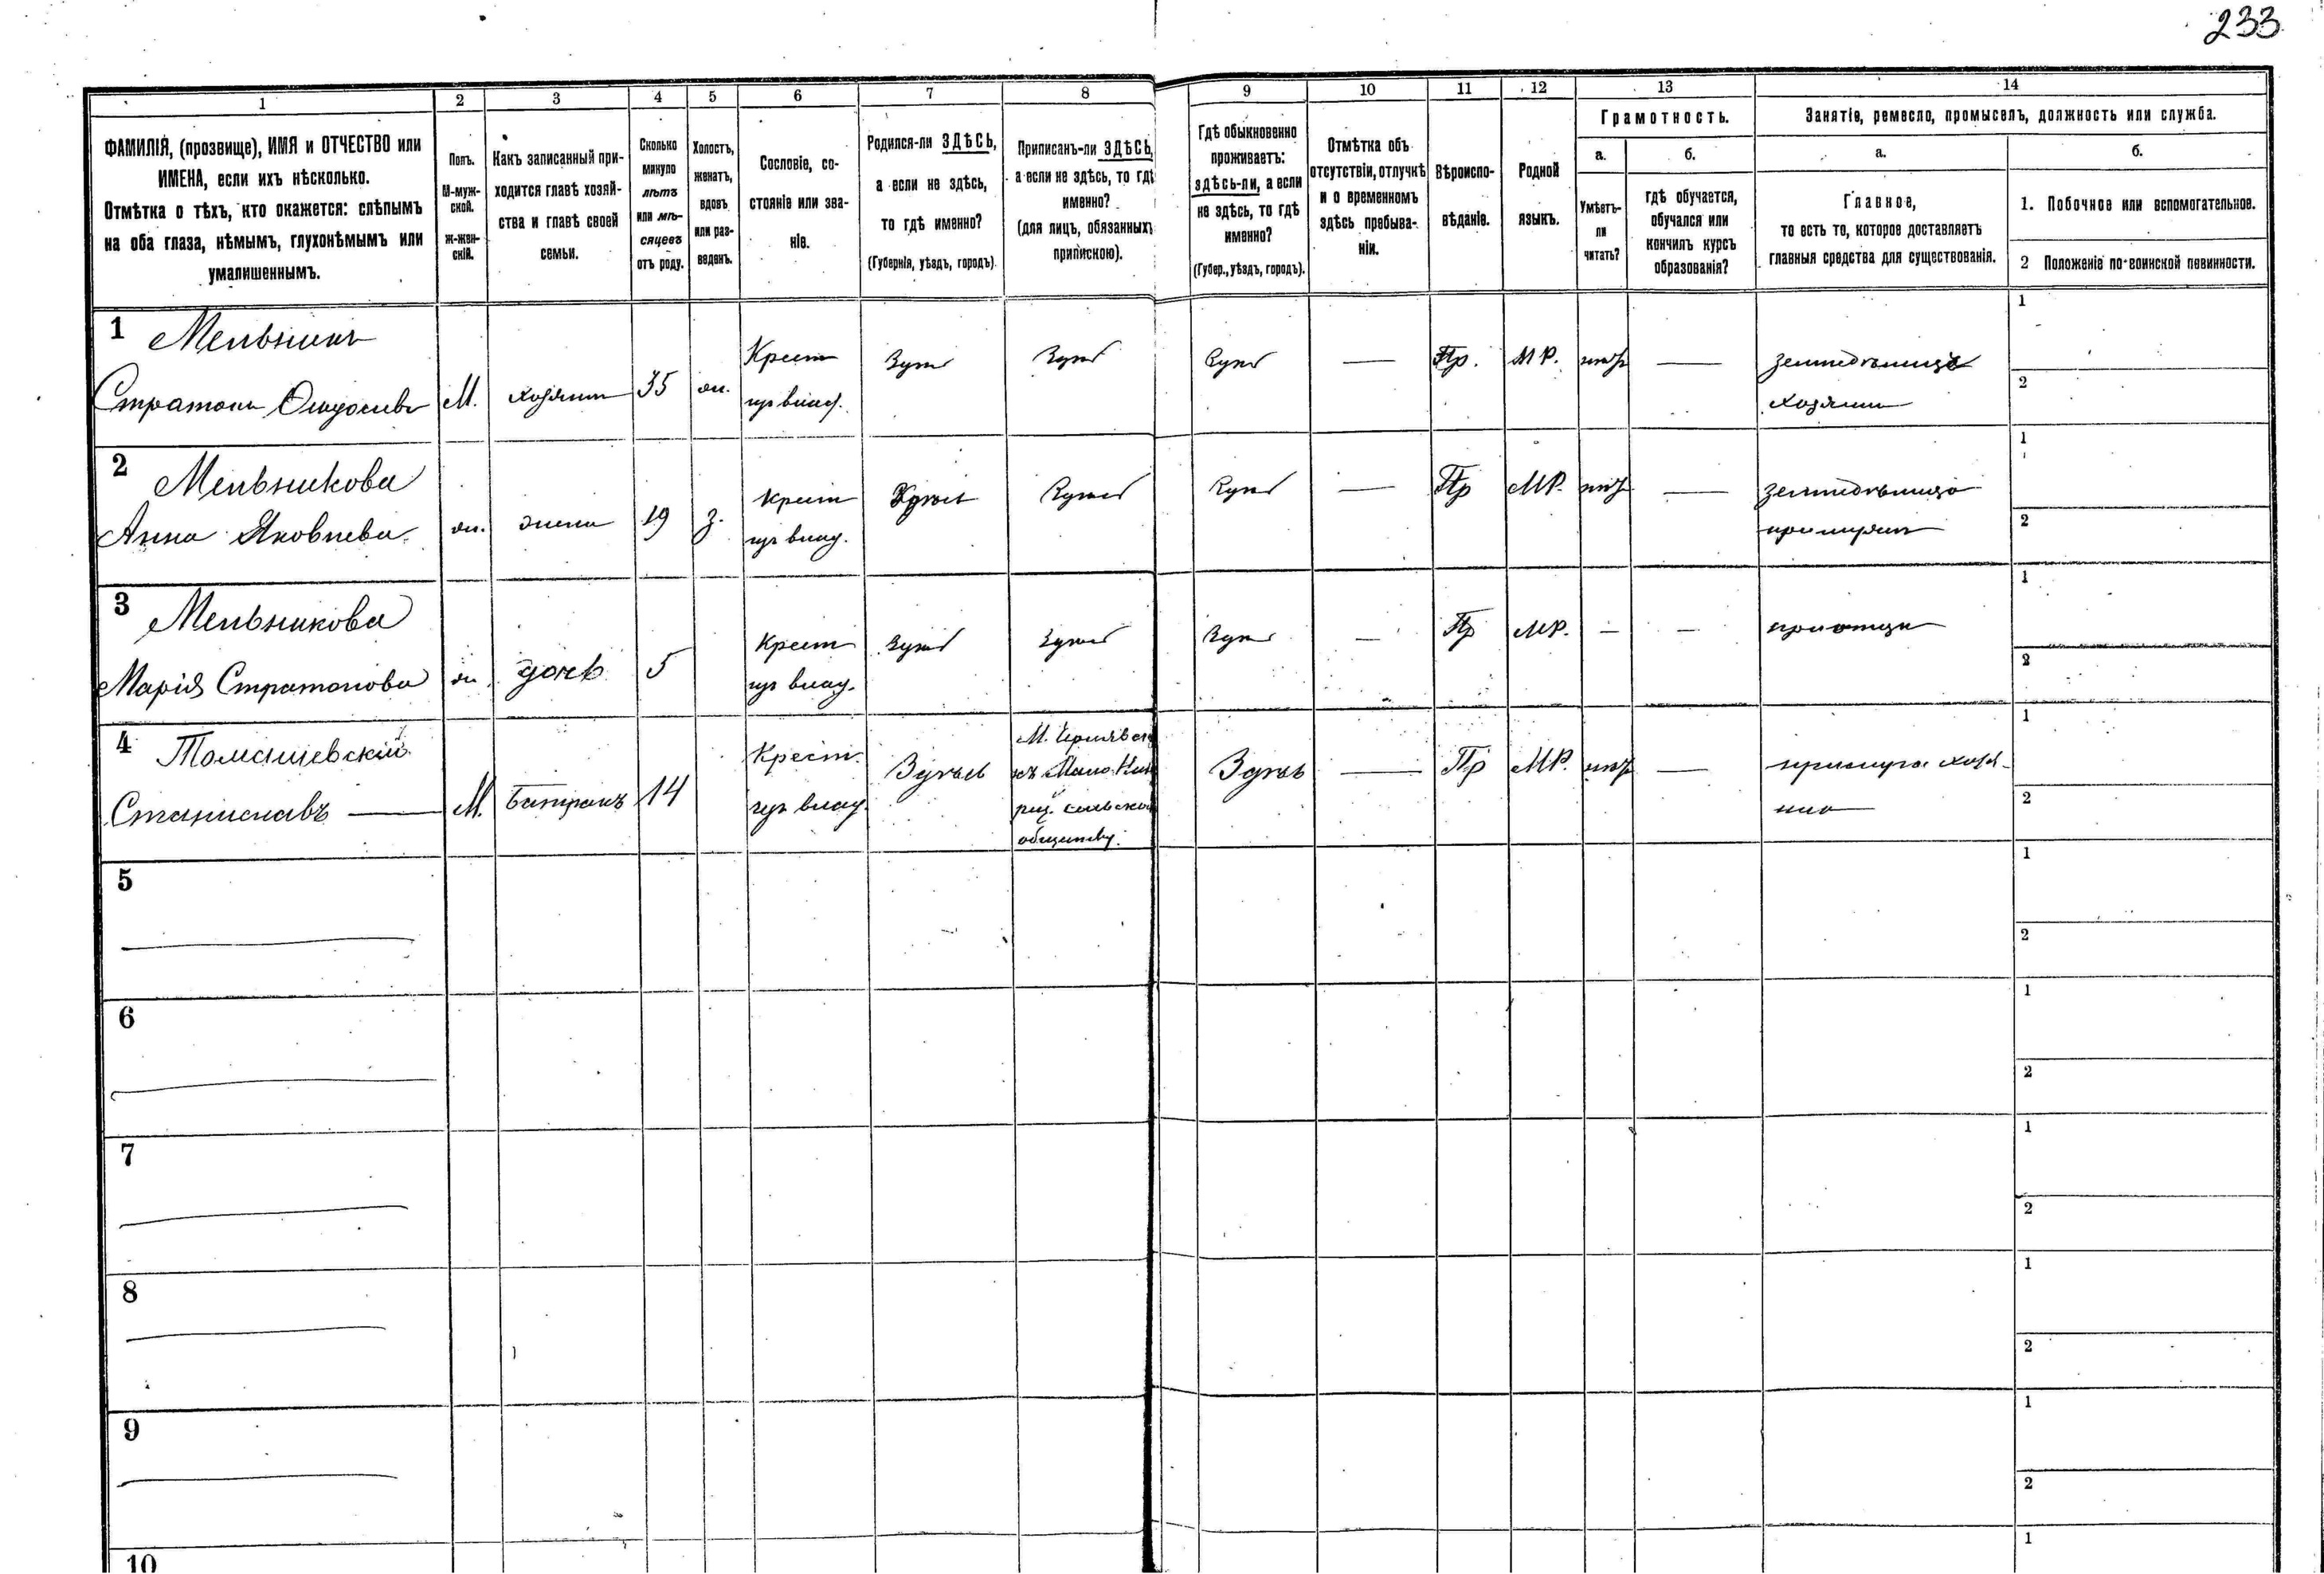 233
1 2 3 4 5 6 7 8 9 10 11 12 13 14
ФАМИЛІЯ, (прозвище), ИМЯ и ОТЧЕСТВО или
ИМЕНА, если ихъ нѣсколько.
Отмѣтка о тѣхъ, кто окажется: слѣпымъ
на оба глаза, нѣмымъ, глухонѣмымъ или
умалишеннымъ.
Полъ.
М-муж-
ской.
ж-жен-
скій.
Какъ записанный при-
ходится главѣ хозяй-
ства и главѣ своей
семьи.
Сколько
минуло
лѣтъ
или мѣ-
сяцевъ
отъ роду.
Холостъ,
женатъ,
вдовъ
или раз-
веденъ.
Сословіе, со-
стояніе или зва-
ніе.
Родился-ли ЗДѢСЬ,
а если не здѣсь,
то гдѣ именно?
(Губернія, уѣздъ, городъ).
Приписанъ-ли ЗДѢСЬ,
а если не здѣсь, то гдѣ
именно?
(для лицъ, обязанныхъ
припискою).
Гдѣ обыкновенно
проживаетъ:
здѣсь-ли, а если
не здѣсь, то гдѣ
именно?
(Губер., уѣздъ, городъ).
Отмѣтка объ
отсутствіи, отлучкѣ
и о временномъ
здѣсь пребыва-
ніи.
Вѣроиспо-
вѣданіе.
Родной
языкъ.
Грамотность.
а.
Умѣетъ-
ли
читать?
б.
гдѣ обучается,
обучался или
кончилъ курсъ
образованія?
Занятіе, ремесло, промыселъ, должность или служба.
а.
Главное,
то есть то, которое доставляетъ
главныя средства для существованія.
б.
1. Побочное или вспомогательное.
2 Положеніе по воинской повинности.
1 Мельникъ
Стратонъ
М.
хозяинъ
35
ж.
Крест
изъ влад.
Здѣсь
Здѣсь
Здѣсь
—
Пр.
МР.
нѣтъ
—
земледѣлецъ
хозяинъ
1
2
2 Мельникова
Анна Яковлева
ж.
жена
19
з.
Крест
изъ влад.
Здѣсь
Здѣсь
Здѣсь
—
Пр
МР.
нѣтъ
—
1
2
3 Мельникова
Марія Стратонова
ж.
дочь
5
Крест
изъ влад.
Здѣсь
Здѣсь
Здѣсь
—
Пр
МР.
—
—
при отцѣ
1
2
4 Томашевскій
Станиславъ —
М.
батракъ
14
Крест.
изъ влад.
Здѣсь
обществу.
Здѣсь
—
Пр
МР.
нѣтъ
—
прислуга хозя-
1
2
5
1
2
6
1
2
7
1
2
8
1
2
9
1
2
10
1